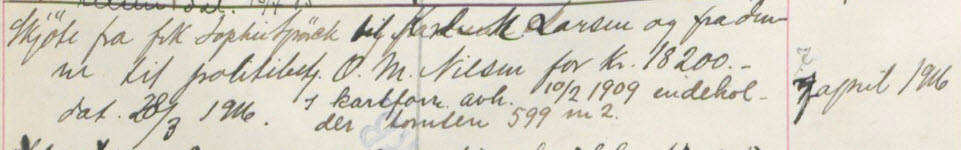 Skjöte fra frk Sophie Spörck til Karl M. Larsen og fra den-
ne til politibetj. O. M. Nilsen for Kr. 18200.-
dat. 28/3 1916. I kartforr. avh. 10/2 1909 indehol-
der tomten 599 m2.
7 april 1916